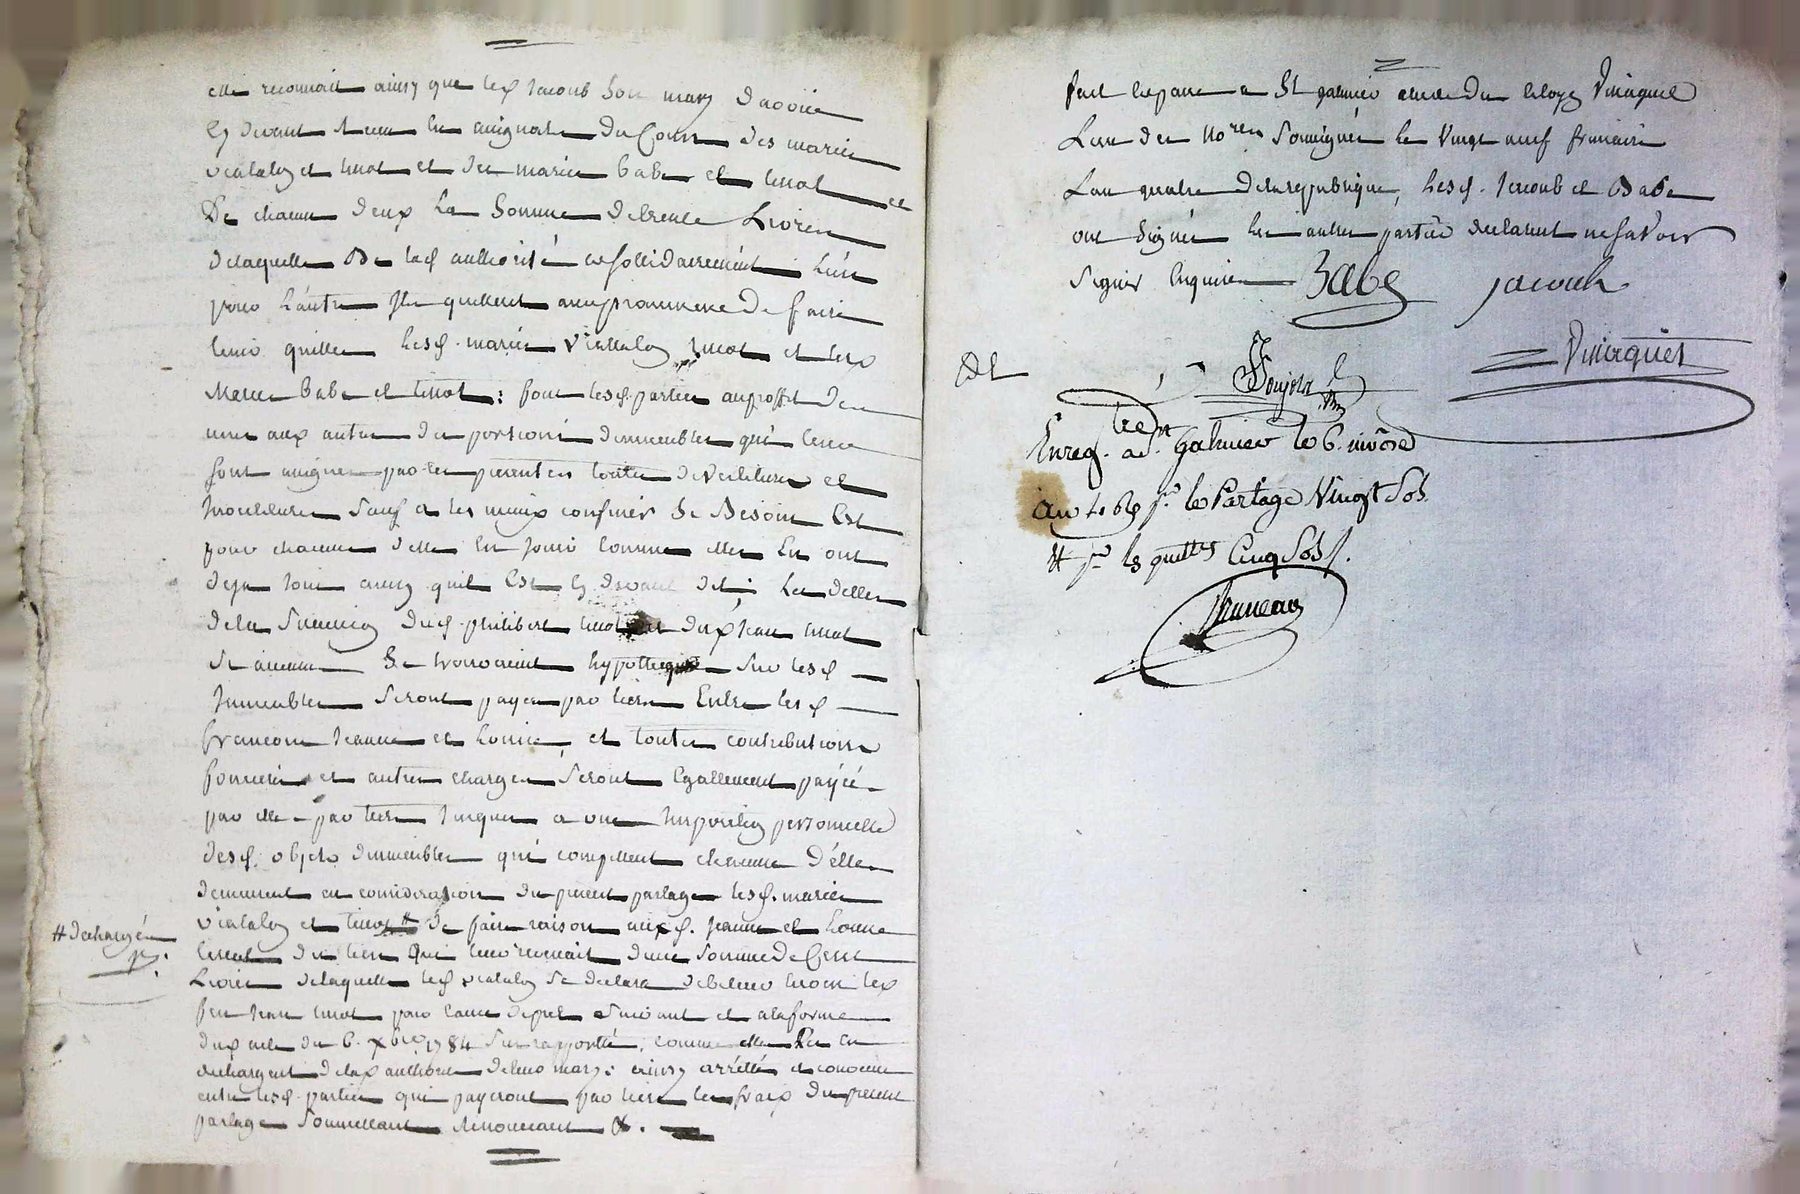 elle reconnait ainsy que led Jacoub son mary d'avoir
cy devant receu les assignats du Cours des mariés
vialaly et tinot et des mariés babe et tinot
De chacun deux La Somme de trente Livres
de laquelle De lad authorité et sollidairement L'un
pour L'autre Ils quittent avec promesse de faire
tenir quittes Lesd. mariés Viallaly tinot et lesd
Maries babe et tinot : pour lesd. parties au proffit des
unes aux autres des portions d'immeubles qui leurs
sont assignés par les presentes toutes devestitures et
Invetitures Sauf a les mieux confiner Si Besoin Est
pour chacune d'elles En jouir Comme elles En ont
deja joui ainsy qu'il Est cy devant dit ; Les dettes
de la Succession dud. philibert tinot dud Jean tinot
Si aucunes Se trouvoient hypotteques Sur lesd
Immeubles Seront payés par tiers Entre lesd
francoise Jeanne et Louise, et toutes contributions
foncieres et autres charges Seront Egallement payés
par elles par tiers Jusques a une Imposition personnelle
desd. objets d'immeubles qui competent chacune d'elles
demeurent en consideration du present partage lesd. mariés
vialaly et tinot # De faire raison auxd. Jeanne et Louise
# dechargés
tinot du tiers Qui leur revenait d'une Somme de Cent
Livres de laquelle led vialaly Se declara debiteur envers led
feu Jean tinot pour cause de pret Suivant et a la forme
dud acte du 6. xbre 1784 Sus rapporté, comme elles Les en
dechargent de lad authorité de leur mary : ainsy arrêtté et convenu
entre lesd. parties qui payeront par tiers les fraix du present
partage Soumettant Renonceant &.
fait et passé a St galmier etude du citoyen Vinaquet
L'un des nores Soussignés le Vingt neuf frimaire
L'an quatre de la republique, Lesd. Jacoub et Babe
ont Signés les autres parties declarant ne Savoir
Signer Enquis Babe jacoub
Vinaquet
Enreg. a St. Galmier le 6. nivôse
an 4e R. pr. le Partage Vingt Sols
& pr. les quittes Cinq Sols /.
Bruneau